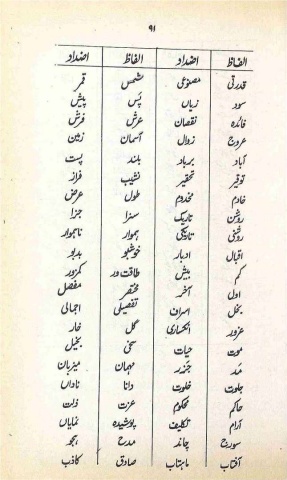 ۹۱
الفاظ اضداد الفاظ اضداد
قدرتی مصنوعی شمس قمر
سود زیاں پس پیش
فائدہ نقصان عرش فرش
عروج زوال آسمان زمین
آباد برباد بلند پست
توقیر تحقیر نشیب فراز
خادم مخدوم طول عرض
روشن تاریک سزا جزا
روشنی تاریکی ہموار ناہموار
اقبال ادبار خوشبو بدبو
کم بیش طاقت ور کمزور
اول آخر مختصر مفصل
بخل اسراف تفصیلی اجمالی
غرور انکساری گل خار
موت حیات سخی بخیل
مد جزر مہمان میزبان
جلوت خلوت دانا ناداں
حاکم محکوم عزت ذلت
آرام تکلیف پوشیدہ نمایاں
سورج چاند مدح ہجو
آفتاب ماہتاب صادق کاذب